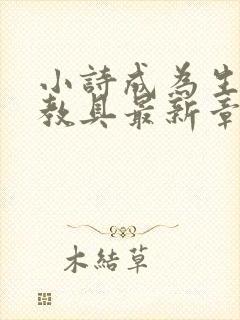 小詩成為生
教具最新章
木結草